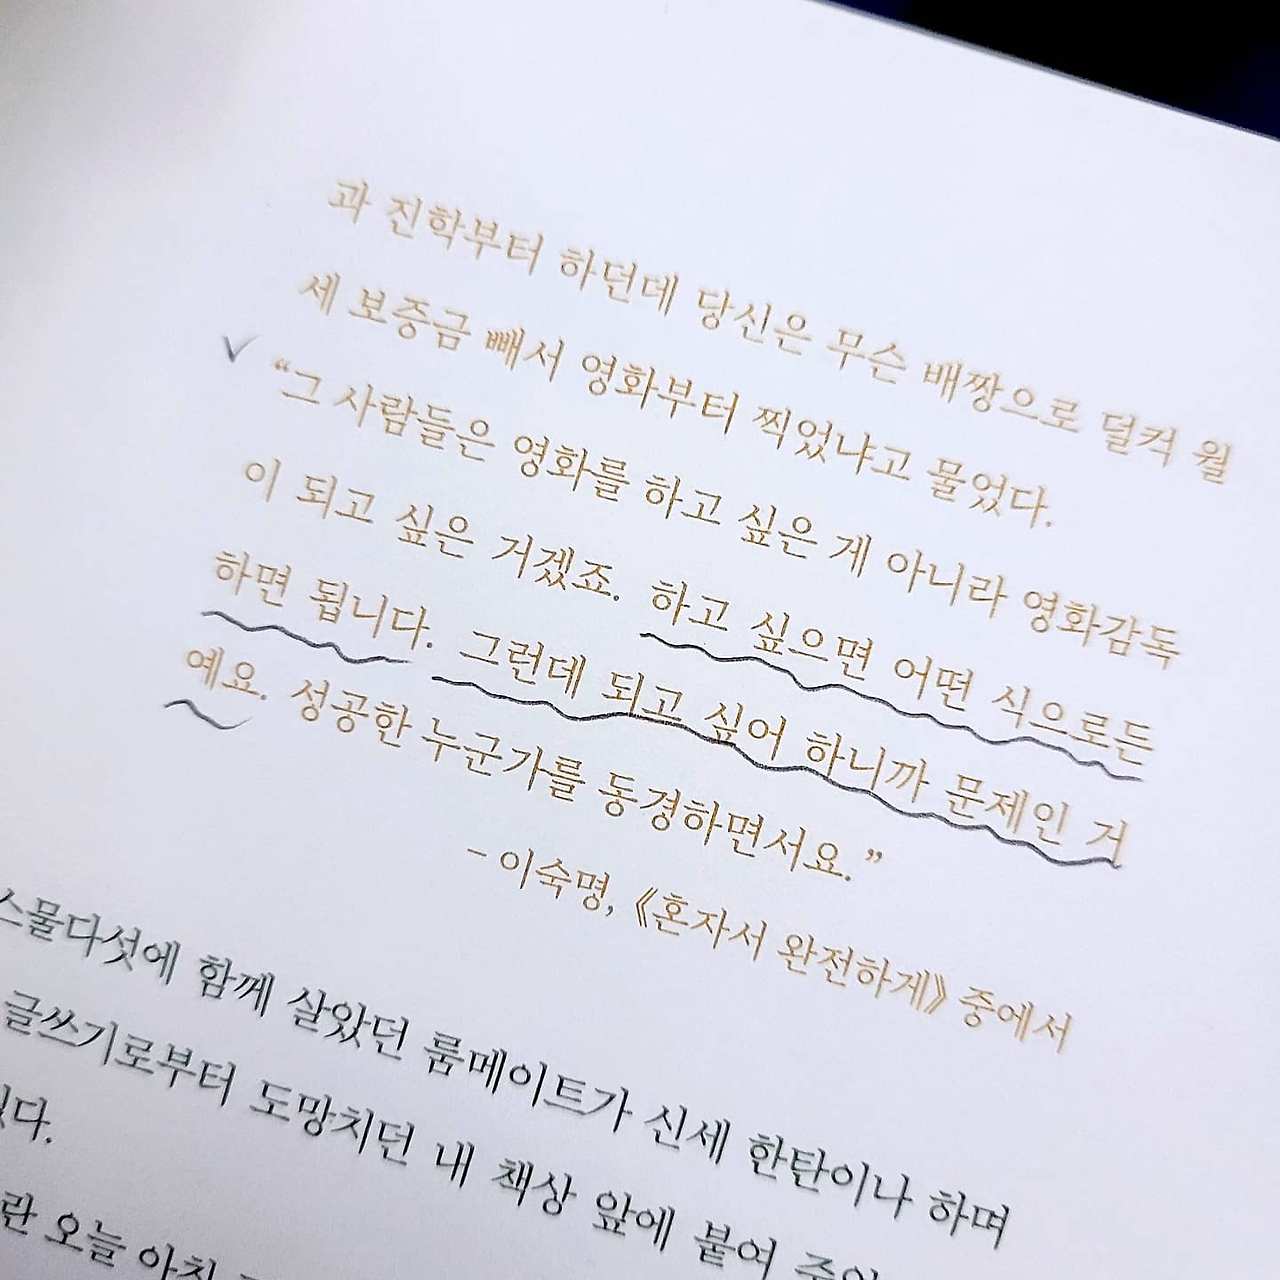 과 진학부터 하던데 당신은 무슨 배짱으로 덜컥 월
세 보증금 빼서 영화부터 찍었냐고 물었다.
“그 사람들은 영화를 하고 싶은 게 아니라 영화감독
이 되고 싶은 거겠죠. 하고 싶으면 어떤 식으로든
하면 됩니다. 그런데 되고 싶어 하니까 문제인 거
예요. 성공한 누군가를 동경하면서요.”
- 이숙명, 《혼자서 완전하게》 중에서
스물다섯에 함께 살았던 룸메이트가 신세 한탄이나 하며
글쓰기로부터 도망치던 내 책상 앞에 붙여
오늘 아침